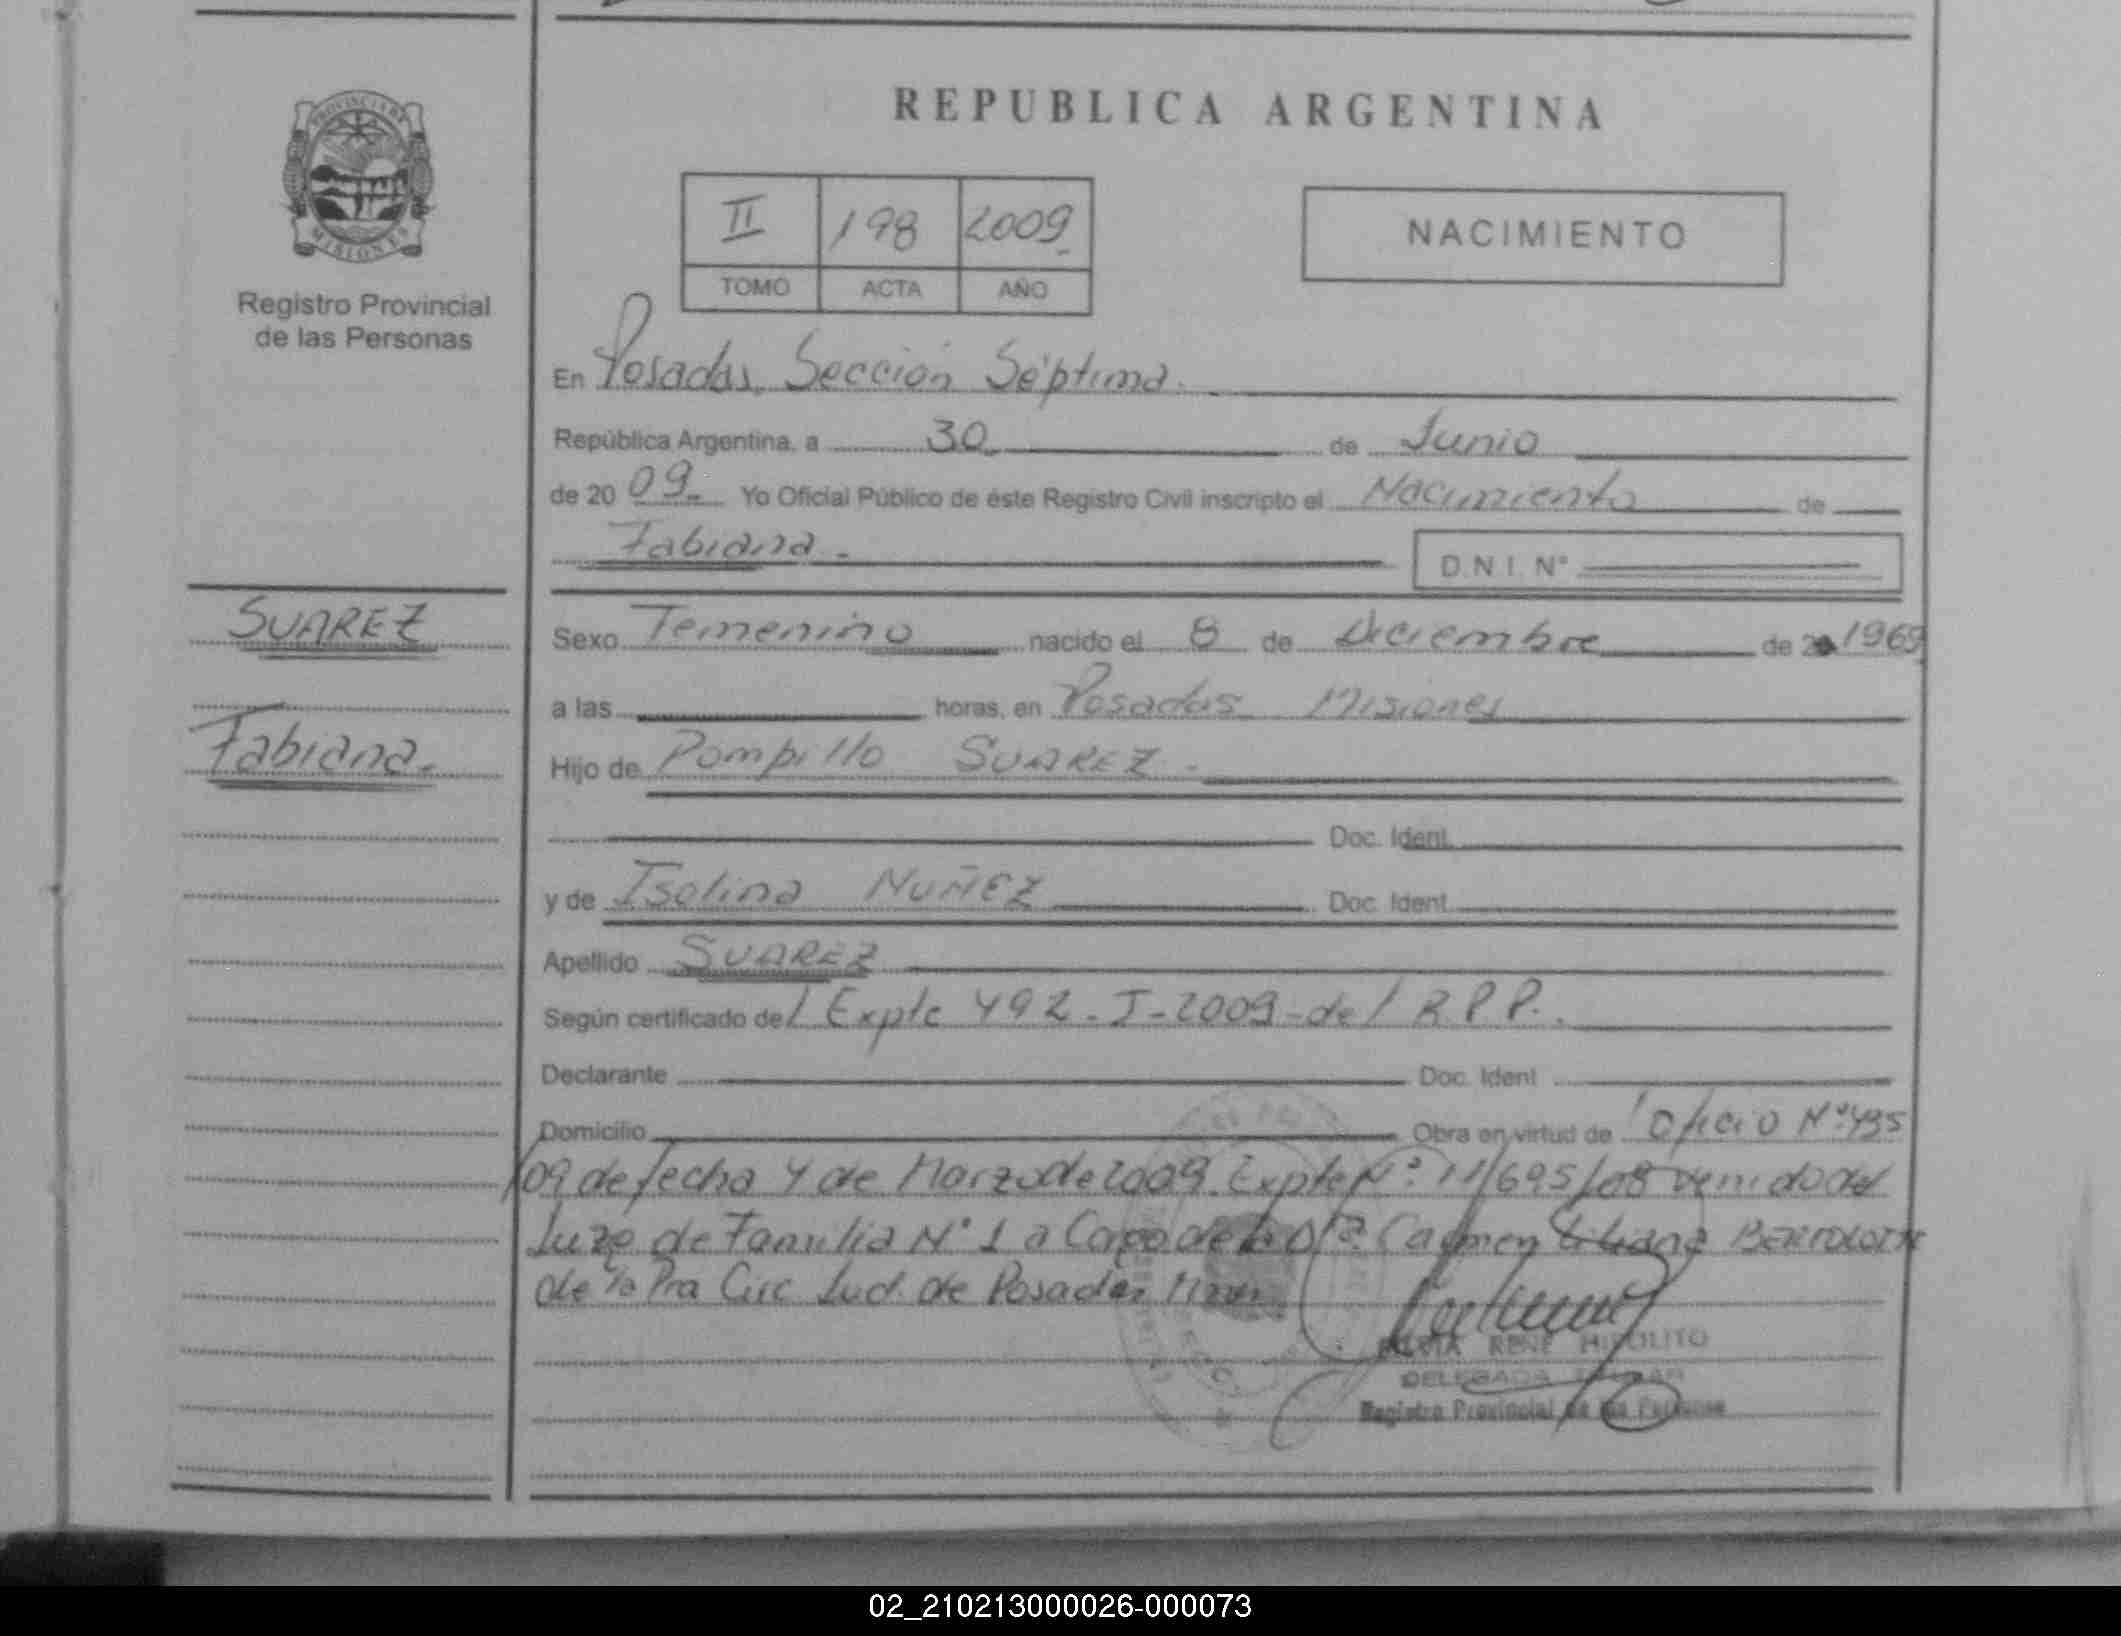 REPUBLICA ARGENTINA
PROVINCIA DE
MISIONES
Registro Provincial
de las Personas
II 198 2009
TOMO ACTA AÑO
NACIMIENTO
En Posadas, Sección Séptima.
República Argentina, a 30 de Junio
de 20 09. Yo Oficial Público de éste Registro Civil inscripto el Nacimiento de
Fabiana.
D.N.I. N°
SUAREZ
Fabiana.
Sexo Femenino nacido el 8 de Diciembre de 1969
a las horas, en Posadas Misiones
Hijo de Pompillo SUAREZ.
Doc. Ident.
y de Isolina NUÑEZ Doc. Ident.
Apellido SUAREZ
Según certificado del Expte 492-I-2009-del R.P.P.
Declarante Doc. Ident
Domicilio Obra en virtud de Oficio N° 495
/09 de fecha 4 de Marzo de 2009. Expte N° 11/695/08 venido del
Juzg de Familia N° 1 a Cargo de la Dra Carmen Liliana
de la Pra Circ Jud. de Posadas
RENE HIPOLITO
DELEGADA TITULAR
Registro Provincial de las Personas
02_210213000026-000073